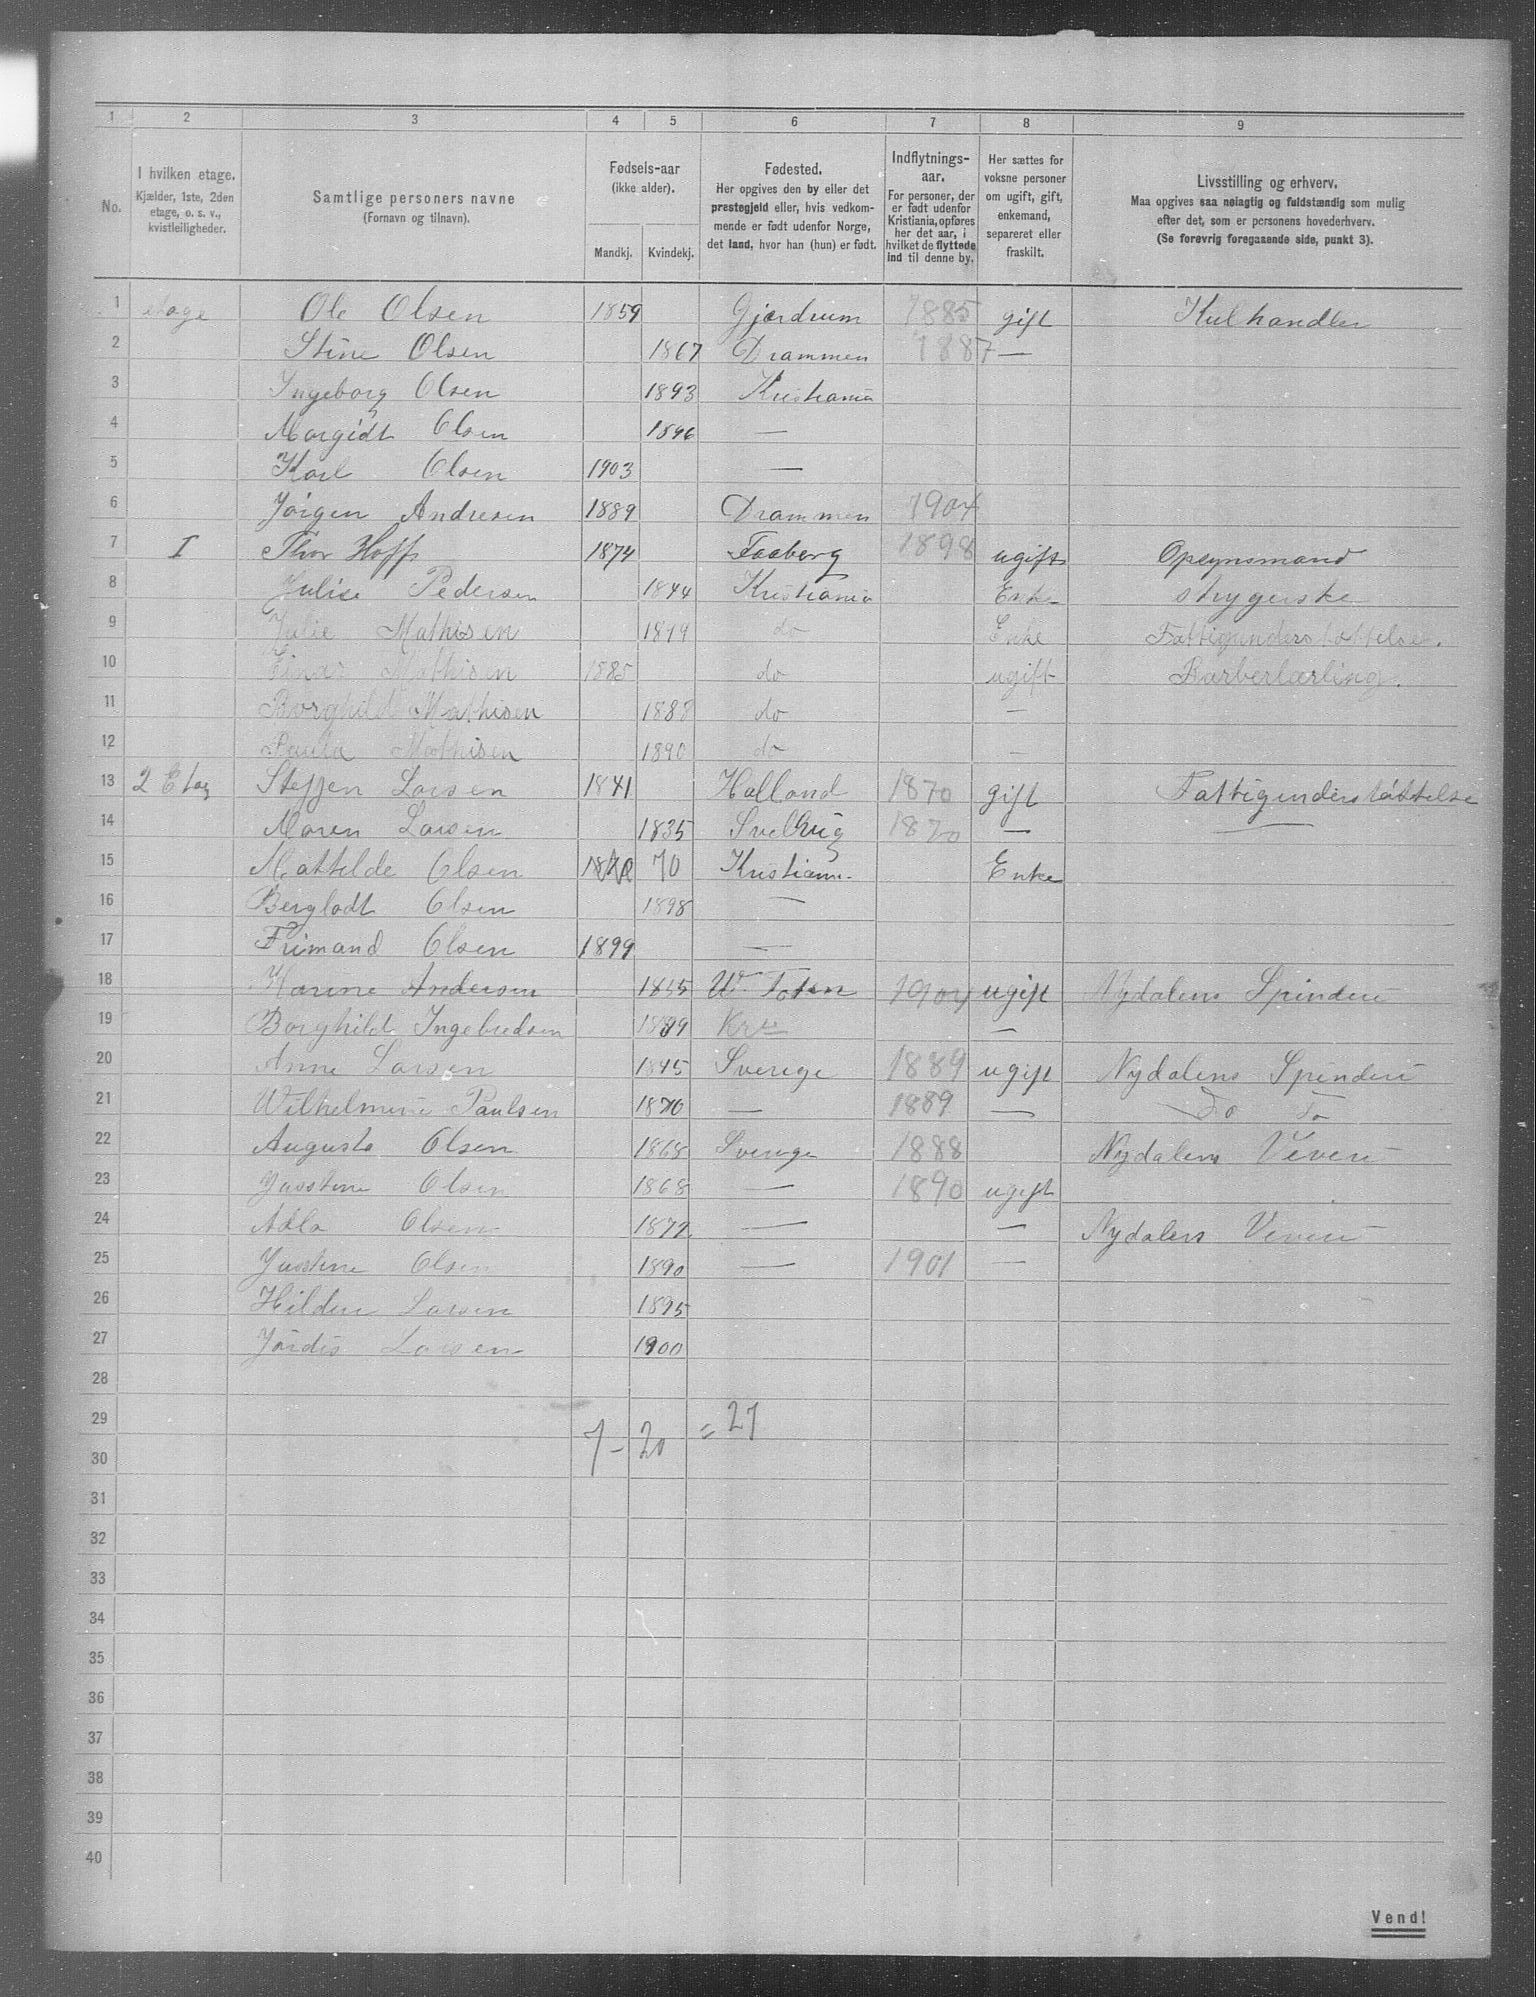 1 2 3 4 5 6 7 8 9
No.
I hvilken etage.
Kjælder, 1ste, 2den
etage, o. s. v.,
kvistleiligheder.
Samtlige personers navne
(Fornavn og tilnavn).
Fødsels-aar
(ikke alder).
Mandkj. Kvindekj.
Fødested.
Her opgives den by eller det
prestegjeld eller, hvis vedkom-
mende er født udenfor Norge,
det land, hvor han (hun) er født.
Indflytnings-
aar.
For personer, der
er født udenfor
Kristiania, opføres
her det aar, i
hvilket de flyttede
ind til denne by.
Her sættes for
voksne personer
om ugift, gift,
enkemand,
separeret eller
fraskilt.
Livsstilling og erhverv.
Maa opgives saa nøiagtig og fuldstændig som mulig
efter det, som er personens hovederhverv.
(Se forøvrig foregaaende side, punkt 3).
1 etage Ole Olsen 1859 Gjerdrum 1885 gift Kulhandler
2 Stine Olsen 1867 Drammen 1887 —
3 Ingeborg Olsen 1893 Kristiania
4 Margidt Olsen 1896 —
5 Karl Olsen 1903 —
6 Jørgen Andresen 1889 Drammen 1904
7 I Thor Hoff 1874 Faaberg 1898 ugift Opsynsmand
8 Julise Pedersen 1844 Kristiania Enke strygerske
9 Julie Mathisen 1849 do Enke Fattigunderstøttelse.
10 Einar Mathisen 1885 do ugift Barberlærling.
11 Borghild Mathisen 1888 do —
12 Paula Mathisen 1890 do —
13 2 Etag Steffen Larsen 1841 Halland 1870 gift Fattigunderstøttelse
14 Maren Larsen 1835 Svelvig 1870 — —
15 Mattelde Olsen 70 Kristiania Enke
16 Berglodt Olsen 1898 —
17 Frimand Olsen 1899 —
18 Karine Andersen 1855 W. Toten 1904 ugift Nydalens Spinderi
19 Borghild Ingebredsen 1889 Kra —
20 Anne Larsen 1845 Sverige 1889 ugift Nydalens Spinderi
21 Wilhelmine Paulsen 1870 — 1889 — Do Do
22 Augusta Olsen 1868 Sverige 1888 Nydalens Veveri
23 Justine Olsen 1868 — 1890 ugift
24 Adla Olsen 1872 — — Nydalens Veveri
25 Justine Olsen 1890 — 1901 —
26 Hildur Larsen 1895
27 Jordis Larsen 1900
28
29
7 - 20 = 27
30
31
32
33
34
35
36
37
38
39
40
Vend!